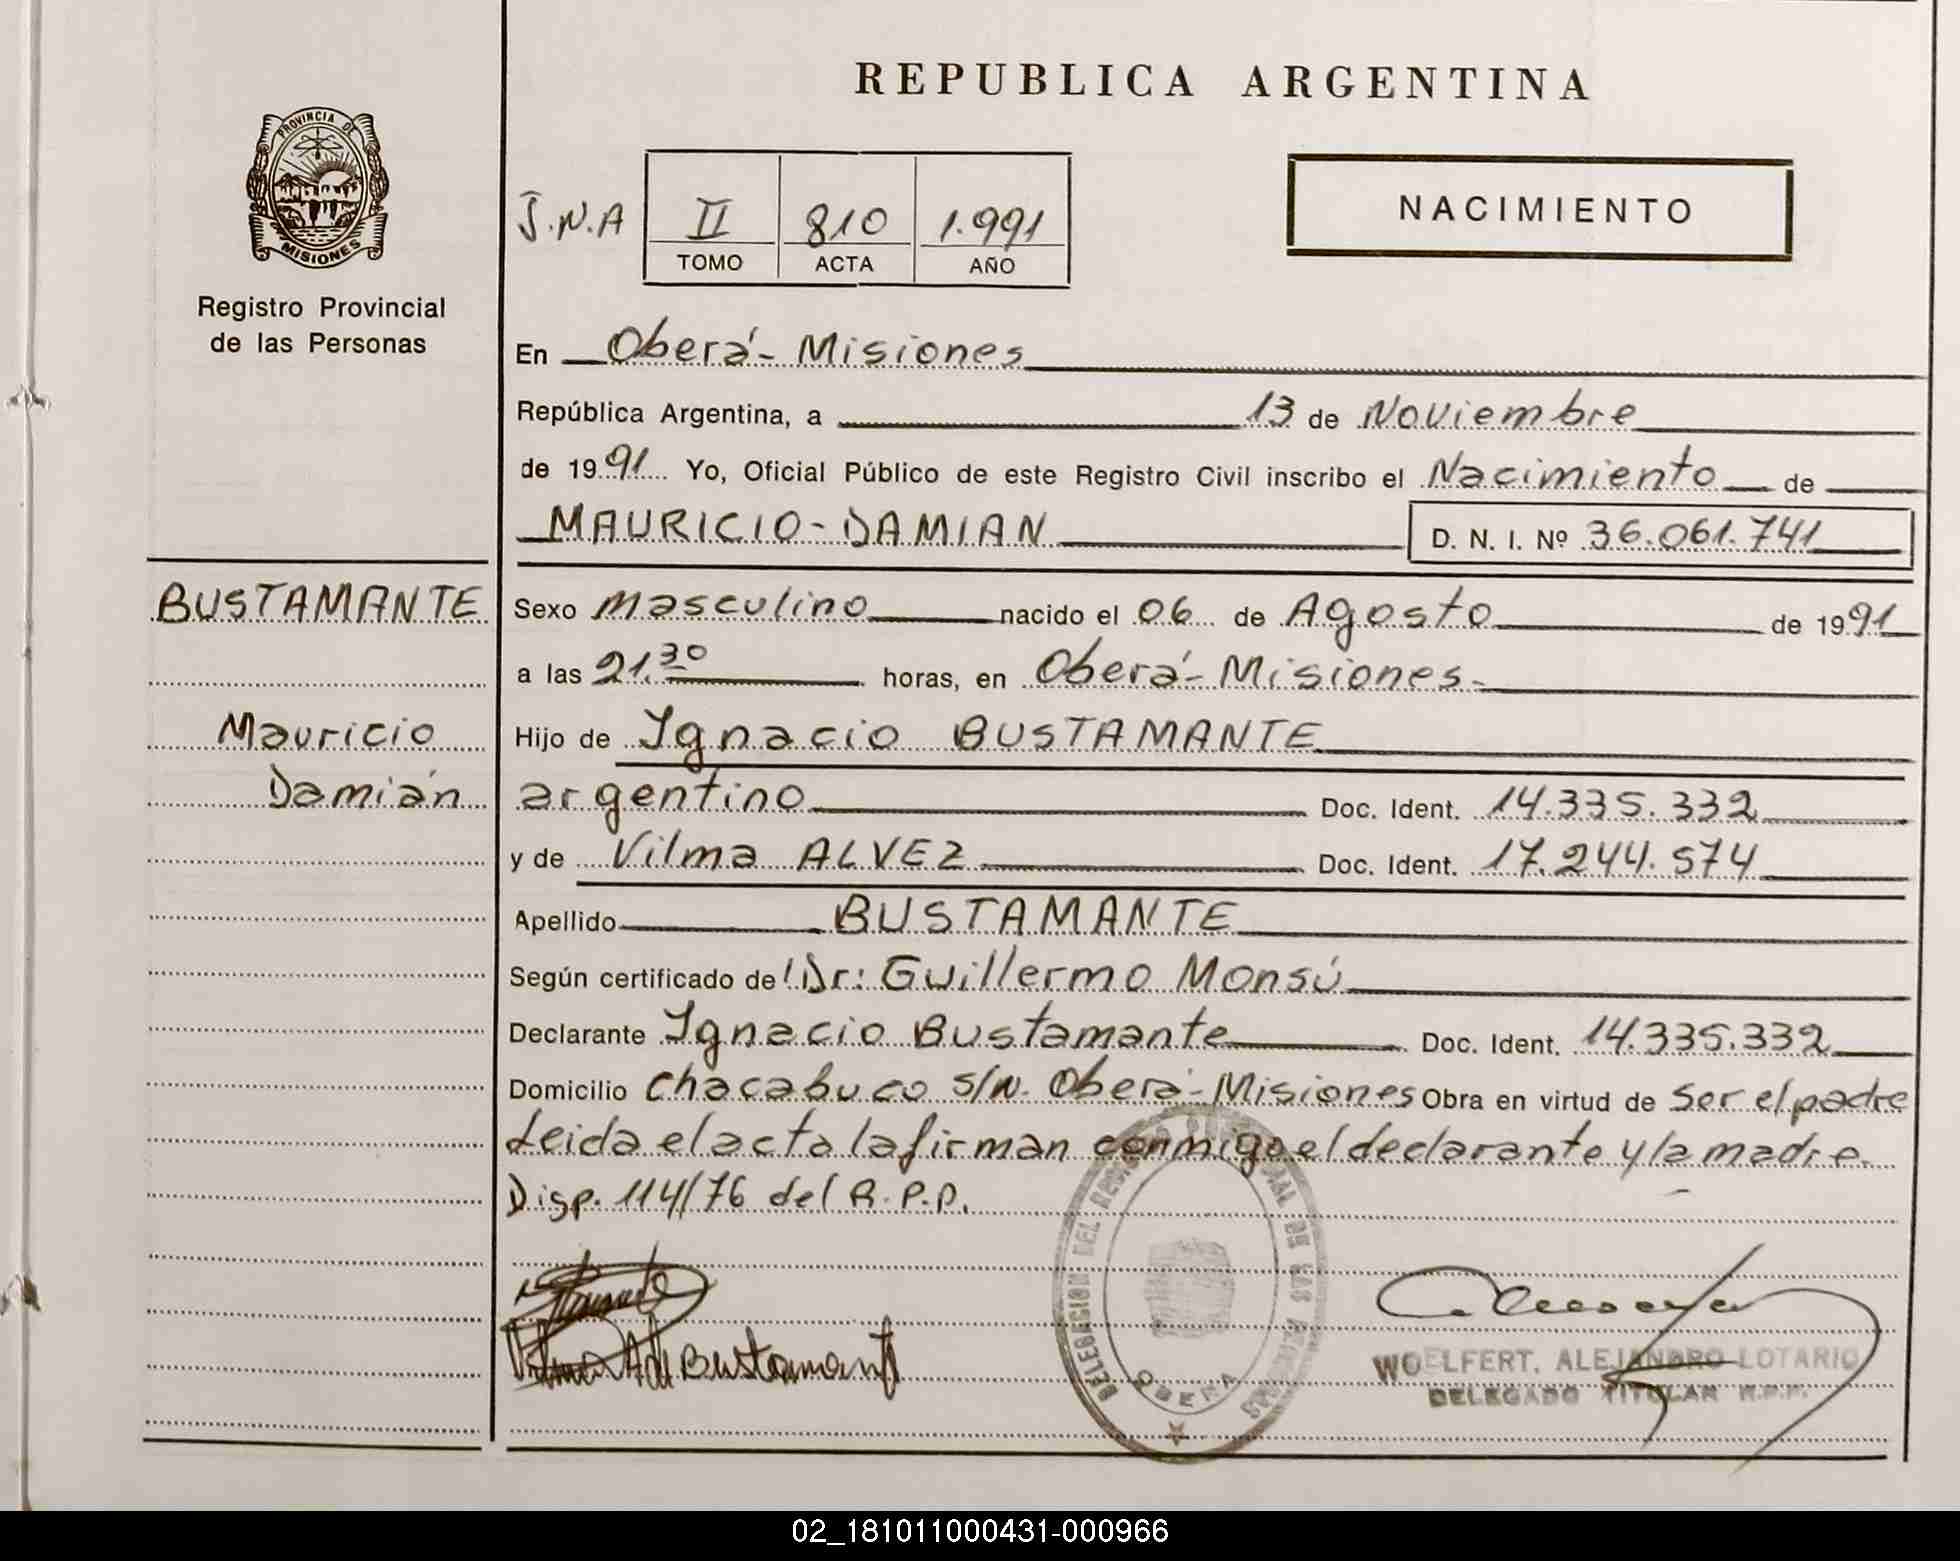 REPUBLICA ARGENTINA
PROVINCIA DE
MISIONES
Registro Provincial
de las Personas
J.N.A
II 810 1.991
TOMO ACTA AÑO
NACIMIENTO
En Oberá - Misiones
República Argentina, a 13 de Noviembre
de 1991 Yo, Oficial Público de este Registro Civil inscribo el Nacimiento de
MAURICIO - DAMIAN D. N. I. Nº 36.061.741
BUSTAMANTE
Mauricio
Damián
Sexo masculino nacido el 06 de Agosto de 1991
a las 21.30 horas, en Oberá - Misiones.
Hijo de Ignacio BUSTAMANTE
argentino Doc. Ident. 14.335.332
y de Vilma ALVEZ Doc. Ident. 17.244.574
Apellido BUSTAMANTE
Según certificado de Dr: Guillermo Monsú
Declarante Ignacio Bustamante Doc. Ident. 14.335.332
Domicilio Chacabuco s/n. Oberá - Misiones Obra en virtud de ser el padre
Leida el acta la firman conmigo el declarante y la madre.
Disp. 114/76 del R.P.P.
DELEGACION DEL REGISTRO PROVINCIAL DE LAS PERSONAS
OBERA
Vilma A de Bustamante
WOELFERT, ALEJANDRO LOTARIO
DELEGADO TITULAR R.P.P.
02_181011000431-000966